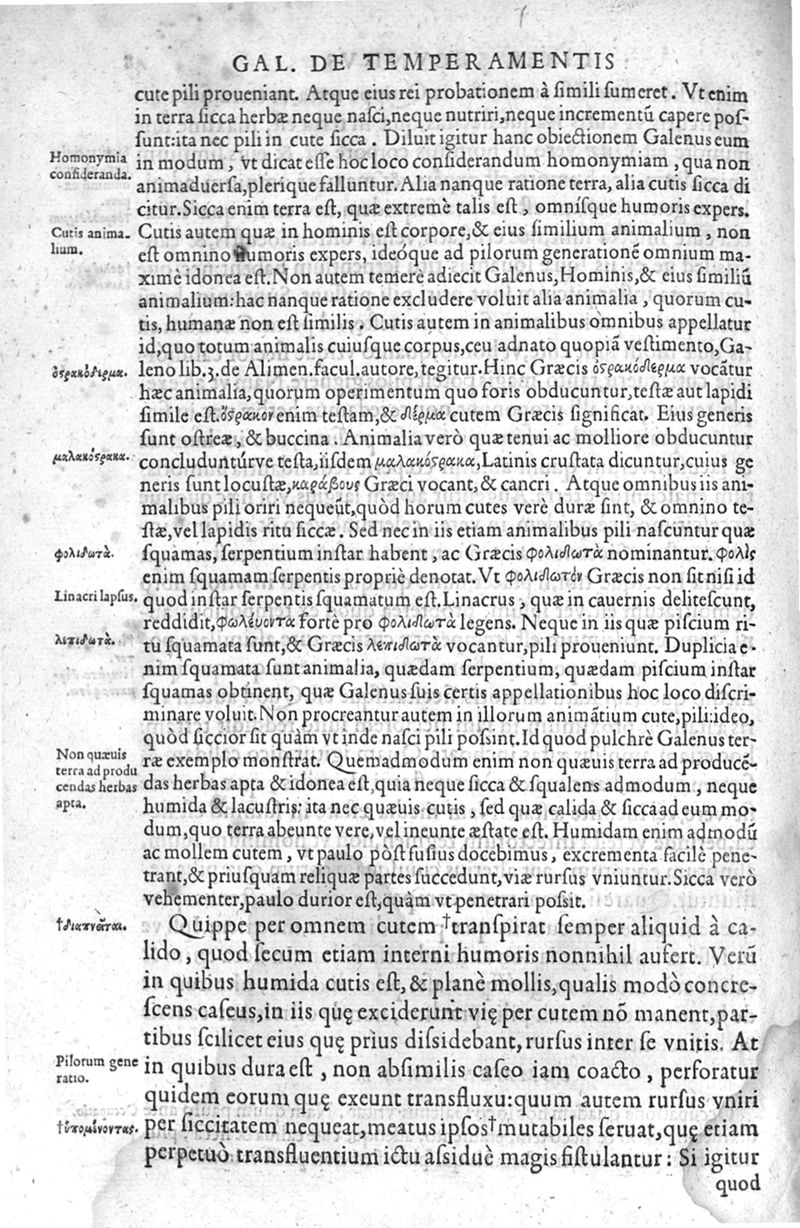 GAL. DE TEMPERAMENTIS
cute pili proueniant. Atque eius rei probationem à simili sumeret. Vt enim
in terra sicca herbæ neque nasci, neque nutriri, neque incrementū capere pos-
sunt: ita nec pili in cute sicca. Diluit igitur hanc obiectionem Galenus eum
Homonymia
consideranda.
in modum, vt dicat esse hoc loco considerandum homonymiam, qua non
animaduersa, plerique falluntur. Alia nanque ratione terra, alia cutis sicca di
citur. Sicca enim terra est, quæ extremè talis est, omnisque humoris expers.
Cutis anima-
lium.
Cutis autem quæ in hominis est corpore, & eius similium animalium, non
est omnino humoris expers, ideóque ad pilorum generationē omnium ma-
ximè idonea est. Non autem temerè adiecit Galenus, Hominis, & eius similiū
animalium: hac nanque ratione excludere voluit alia animalia, quorum cu-
tis, humanæ non est similis. Cutis autem in animalibus òmnibus appellatur
id, quo totum animalis cuiusque corpus, ceu adnato quopiā vestimento, Ga-
ὀστρακόδερμα.
leno lib. 3. de Alimen. facul. autore, tegitur. Hinc Græcis ὀστρακόδερμα vocātur
hæc animalia, quorum operimentum quo foris obducuntur, testæ aut lapidi
simile est. ὄστρακον enim testam, & δέρμα cutem Græcis significat. Eius generis
sunt ostreæ, & buccina. Animalia verò quæ tenui ac molliore obducuntur
μαλακόστρακα.
concluduntúrve testa, iisdem μαλακόστρακα, Latinis crustata dicuntur, cuius ge
neris sunt locustæ, καράβους Græci vocant, & cancri. Atque omnibus iis ani-
malibus pili oriri nequeūt, quòd horum cutes verè duræ sint, & omnino te-
stæ, vel lapidis ritu siccæ. Sed nec in iis etiam animalibus pili nascuntur quæ
φολιδωτὰ.
squamas, serpentium instar habent, ac Græcis φολιδωτὰ nominantur. φολὶς
enim squamam serpentis propriè denotat. Vt φολιδωτὸν Græcis non sit nisi id
Linacri lapsus.
quod instar serpentis squamatum est. Linacrus, quæ in cauernis delitescunt,
reddidit, φωλέυοντα fortè pro φολιδωτὰ legens. Neque in iis quæ piscium ri-
λεπιδωτὰ.
tu squamata sunt, & Græcis λεπιδωτὰ vocantur, pili proueniunt. Duplicia e-
nim squamata sunt animalia, quædam serpentium, quædam piscium instar
squamas obtinent, quæ Galenus suis certis appellationibus hoc loco discri-
minare voluit. Non procreantur autem in illorum animātium cute, pili: ideo,
quòd siccior sit quàm vt inde nasci pili possint. Id quod pulchrè Galenus ter-
Non quæuis
terra ad produ
cendas herbas
apta.
ræ exemplo monstrat. Quemadmodum enim non quæuis terra ad producē-
das herbas apta & idonea est, quia neque sicca & squalens admodum, neque
humida & lacustris: ita nec quæuis cutis, sed quæ calida & sicca ad eum mo-
dum, quo terra abeunte vere, vel ineunte æstate est. Humidam enim admodū
ac mollem cutem, vt paulo pòst fusius docebimus, excrementa facilè pene-
trant, & priusquam reliquæ partes succedunt, viæ rursus vniuntur. Sicca verò
vehementer, paulo durior est, quàm vt penetrari possit.
†διαπνεῖται.
Quippe per omnem cutem †transpirat semper aliquid à ca-
lido, quod secum etiam interni humoris nonnihil aufert. Verū
in quibus humida cutis est, & planè mollis, qualis modò concre-
scens caseus, in iis quę exciderunt vię per cutem nō manent, par-
tibus scilicet eius quę prius dissidebant, rursus inter se vnitis. At
Pilorum gene
ratio.
in quibus dura est, non absimilis caseo iam coacto, perforatur
quidem eorum quę exeunt transfluxu: quum autem rursus vniri
†ὑπομένοντας.
per siccitatem nequeat, meatus ipsos †mutabiles seruat, quę etiam
perpetuò transfluentium ictu assiduè magis fistulantur: Si igitur
quod